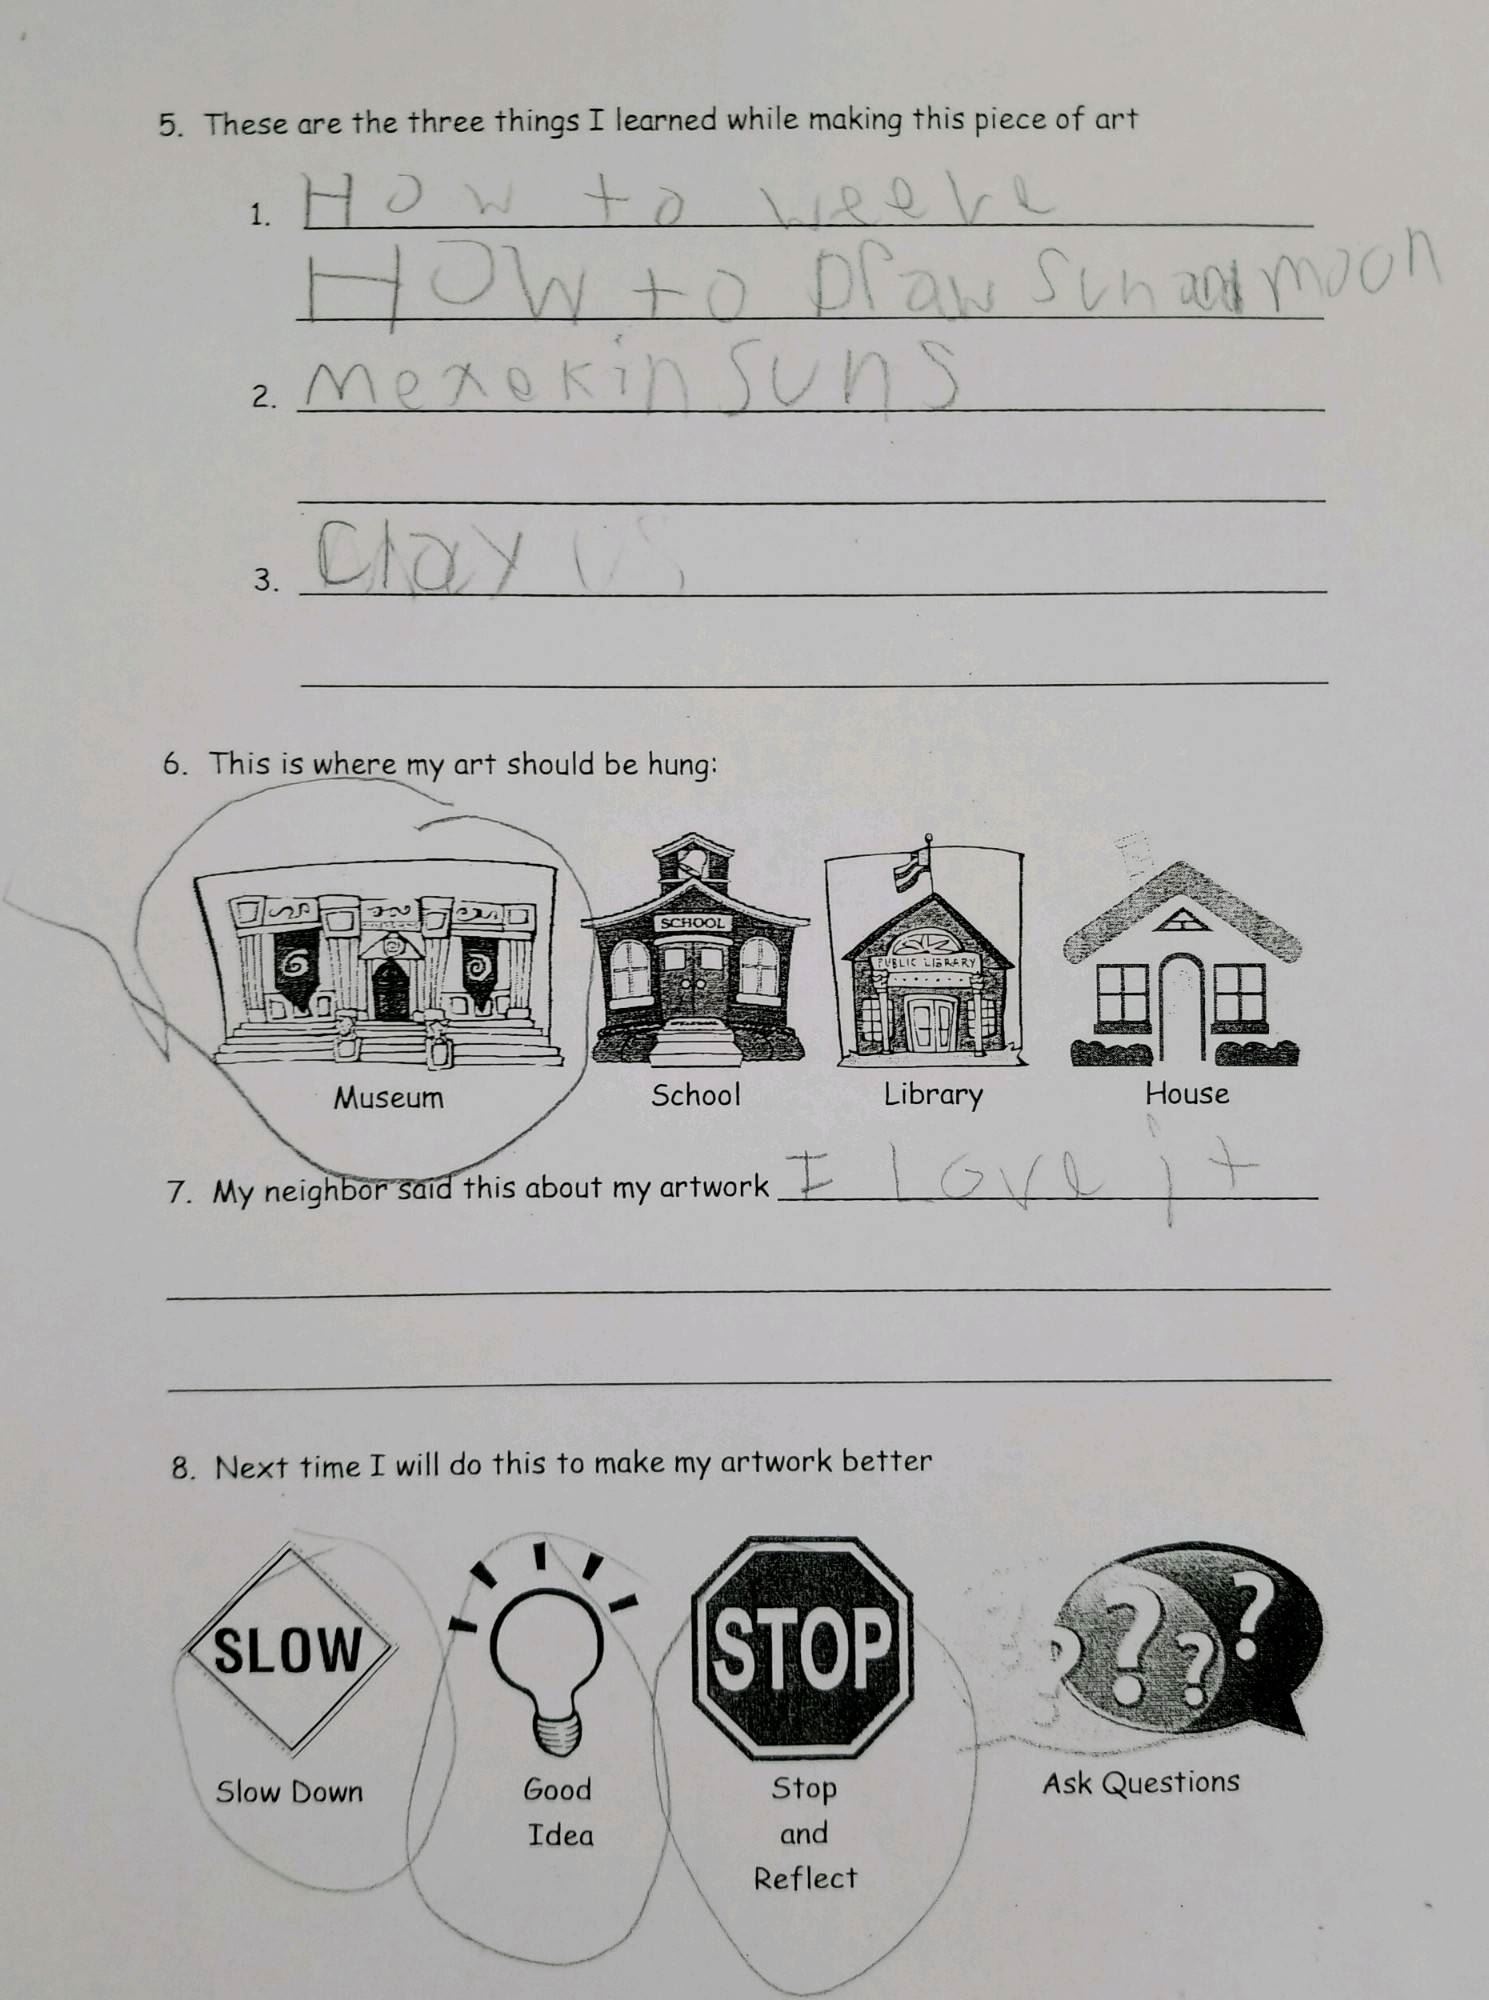 5. These are the three things I learned while making this piece of art
1. How to weeve
How to Draw sun and moon
2. mexekin suns
3. Clay
6. This is where my art should be hung:
SCHOOL
PUBLIC LIBRARY
Museum School Library House
7. My neighbor said this about my artwork I love it
8. Next time I will do this to make my artwork better
SLOW STOP ? ? ? ?
Slow Down Good Stop Ask Questions
Idea and
Reflect